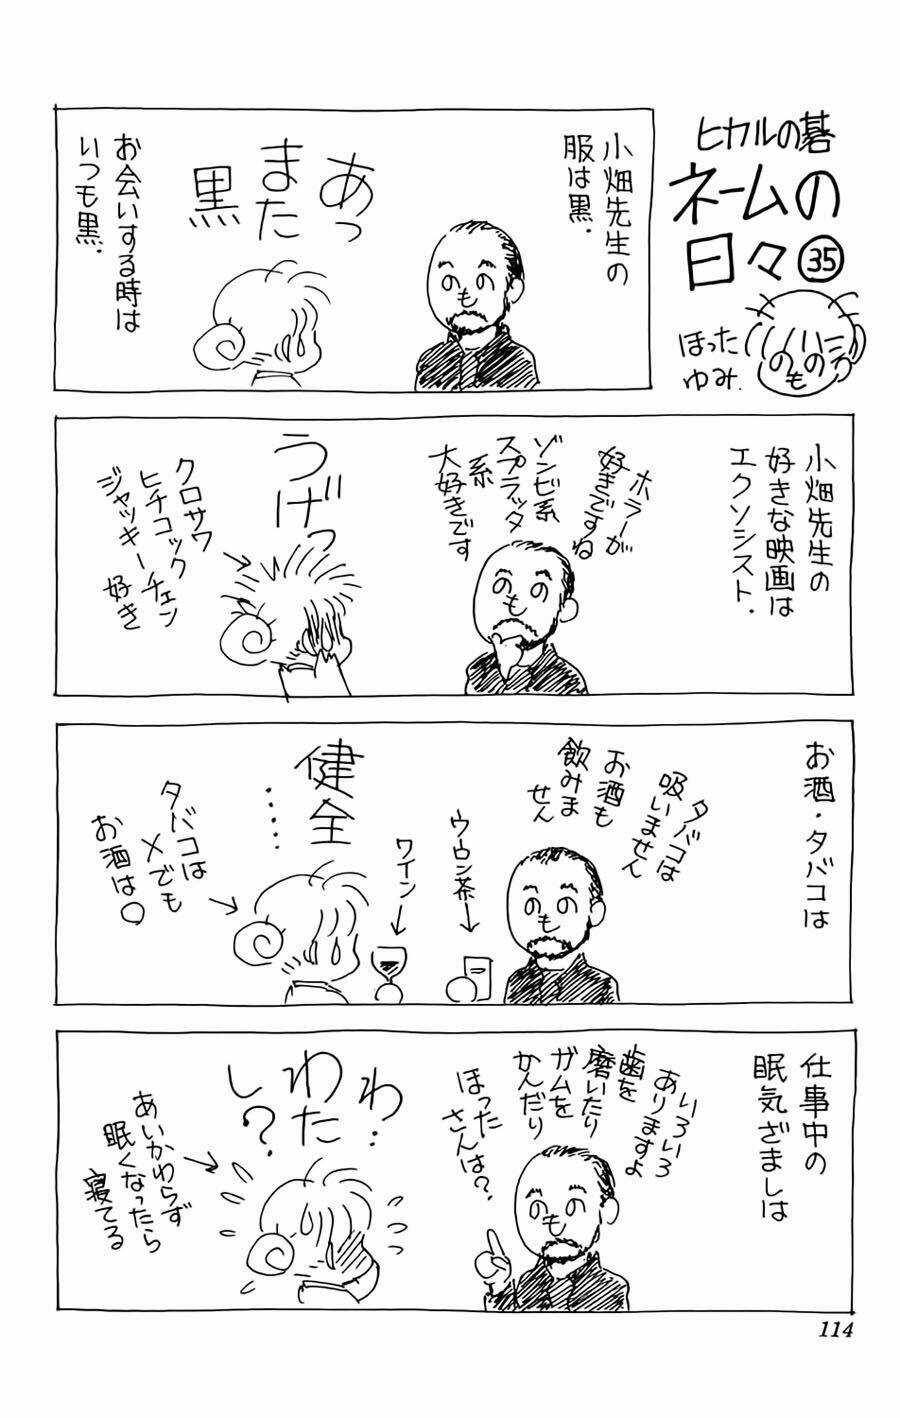 ヒカルの碁
ネームの
日々㉟
ほった
ゆみ.
小畑先生の
服は黒.
あっ
また
黒
お会いする時は
いつも黒.
小畑先生の
好きな映画は
エクソシスト.
ホラーが
好きですね
ゾンビ系
スプラッタ
系
大好きです
うげっ
クロサワ
ヒチコック
ジャッキーチェン
好き
お酒・タバコは
タバコは
吸いません
お酒も
飲みま
せん
ウーロン茶
ワイン
健全
‥‥‥
タバコは
×でも
お酒は○
仕事中の
眠気ざましは
いろいろ
ありますよ
歯を
磨いたり
ガムを
かんだり
ほった
さんは?
わ‥
わた
し?
あいかわらず
眠くなったら
寝てる
114